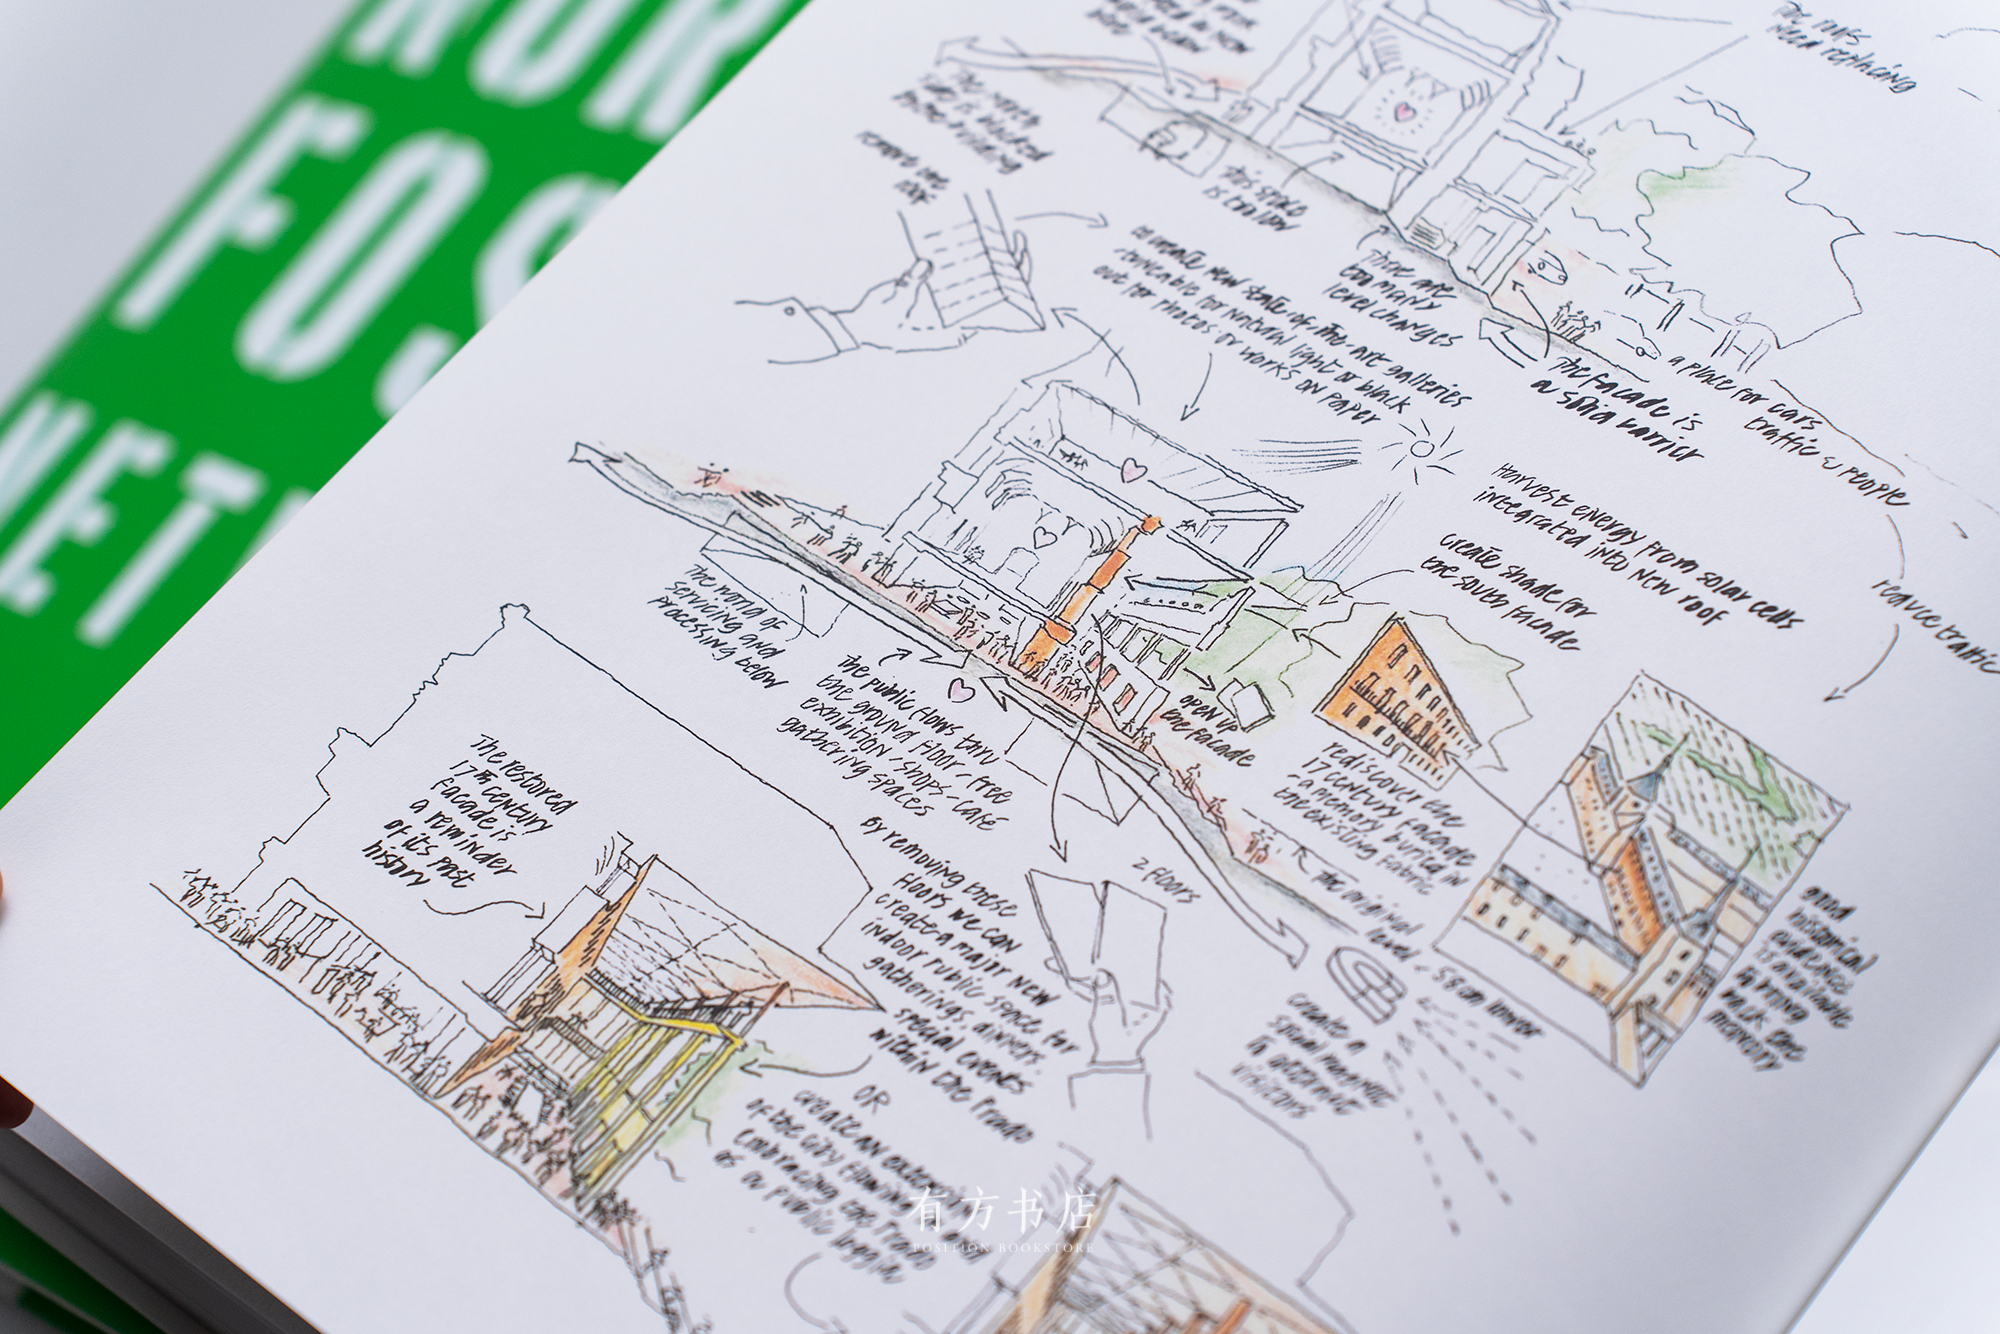 NOR
FOS
NET
the roofs
need replacing
The north
side is blocked
by the building
remove the
roof
this space
is too low
There are
too many
level changes
The facade is
a solid barrier
a place for cars
traffic & people
reduce traffic
to create new state-of-the-art galleries
for natural light or black
out for photos or works on paper
Harvest energy from solar cells
integrated into new roof
create shade for
the south facade
The world of
servicing and
processing below
The public flows thru
the ground floor - free
exhibition - shops - café
gathering spaces
open up
the facade
rediscover the
17 century facade
- a memory buried in
the existing fabric
good
historical
evidence
is available
bring
back the
memory
The restored
17th century
facade is
a reminder
of its past
history
By removing these
floors we can
create a major new
indoor public space for
gatherings, dinners,
special events
within the Prado
2 floors
The original
level - 58cm lower
create a
to attract
visitors
OR
create an
of the city flowing
embracing the
as a public loggia
有方书店
POSITION BOOKSTORE